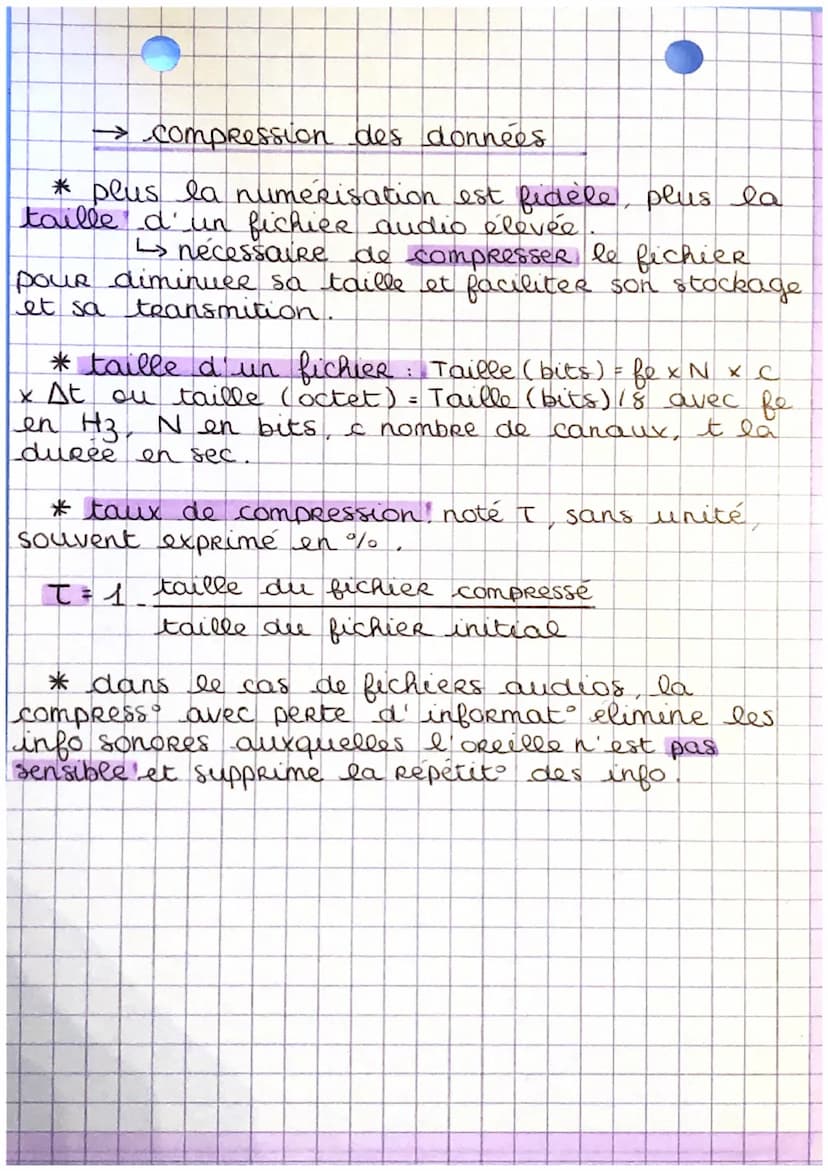 → compression des données
* plus la numérisation est fidèle, plus la
taille d'un fichier audio élevée.
↳ nécessaire de compresser le fichier
pour diminuer sa taille et faciliter son stockage
et sa transmition.
* taille d'un fichier : Taille (bits) = fe x N x c
x Δt ou taille (octet) = Taille (bits)/8 avec fe
en Hz, N en bits, c nombre de canaux, t la
durée en sec.
* taux de compression : noté τ, sans unité,
souvent exprimé en %.
τ = 1 - taille du fichier compressé
taille du fichier initial
* dans le cas de fichiers audios, la
compress° avec perte d'informat° élimine les
info sonores auxquelles l'oreille n'est pas
sensible et supprime la répétit° des info.